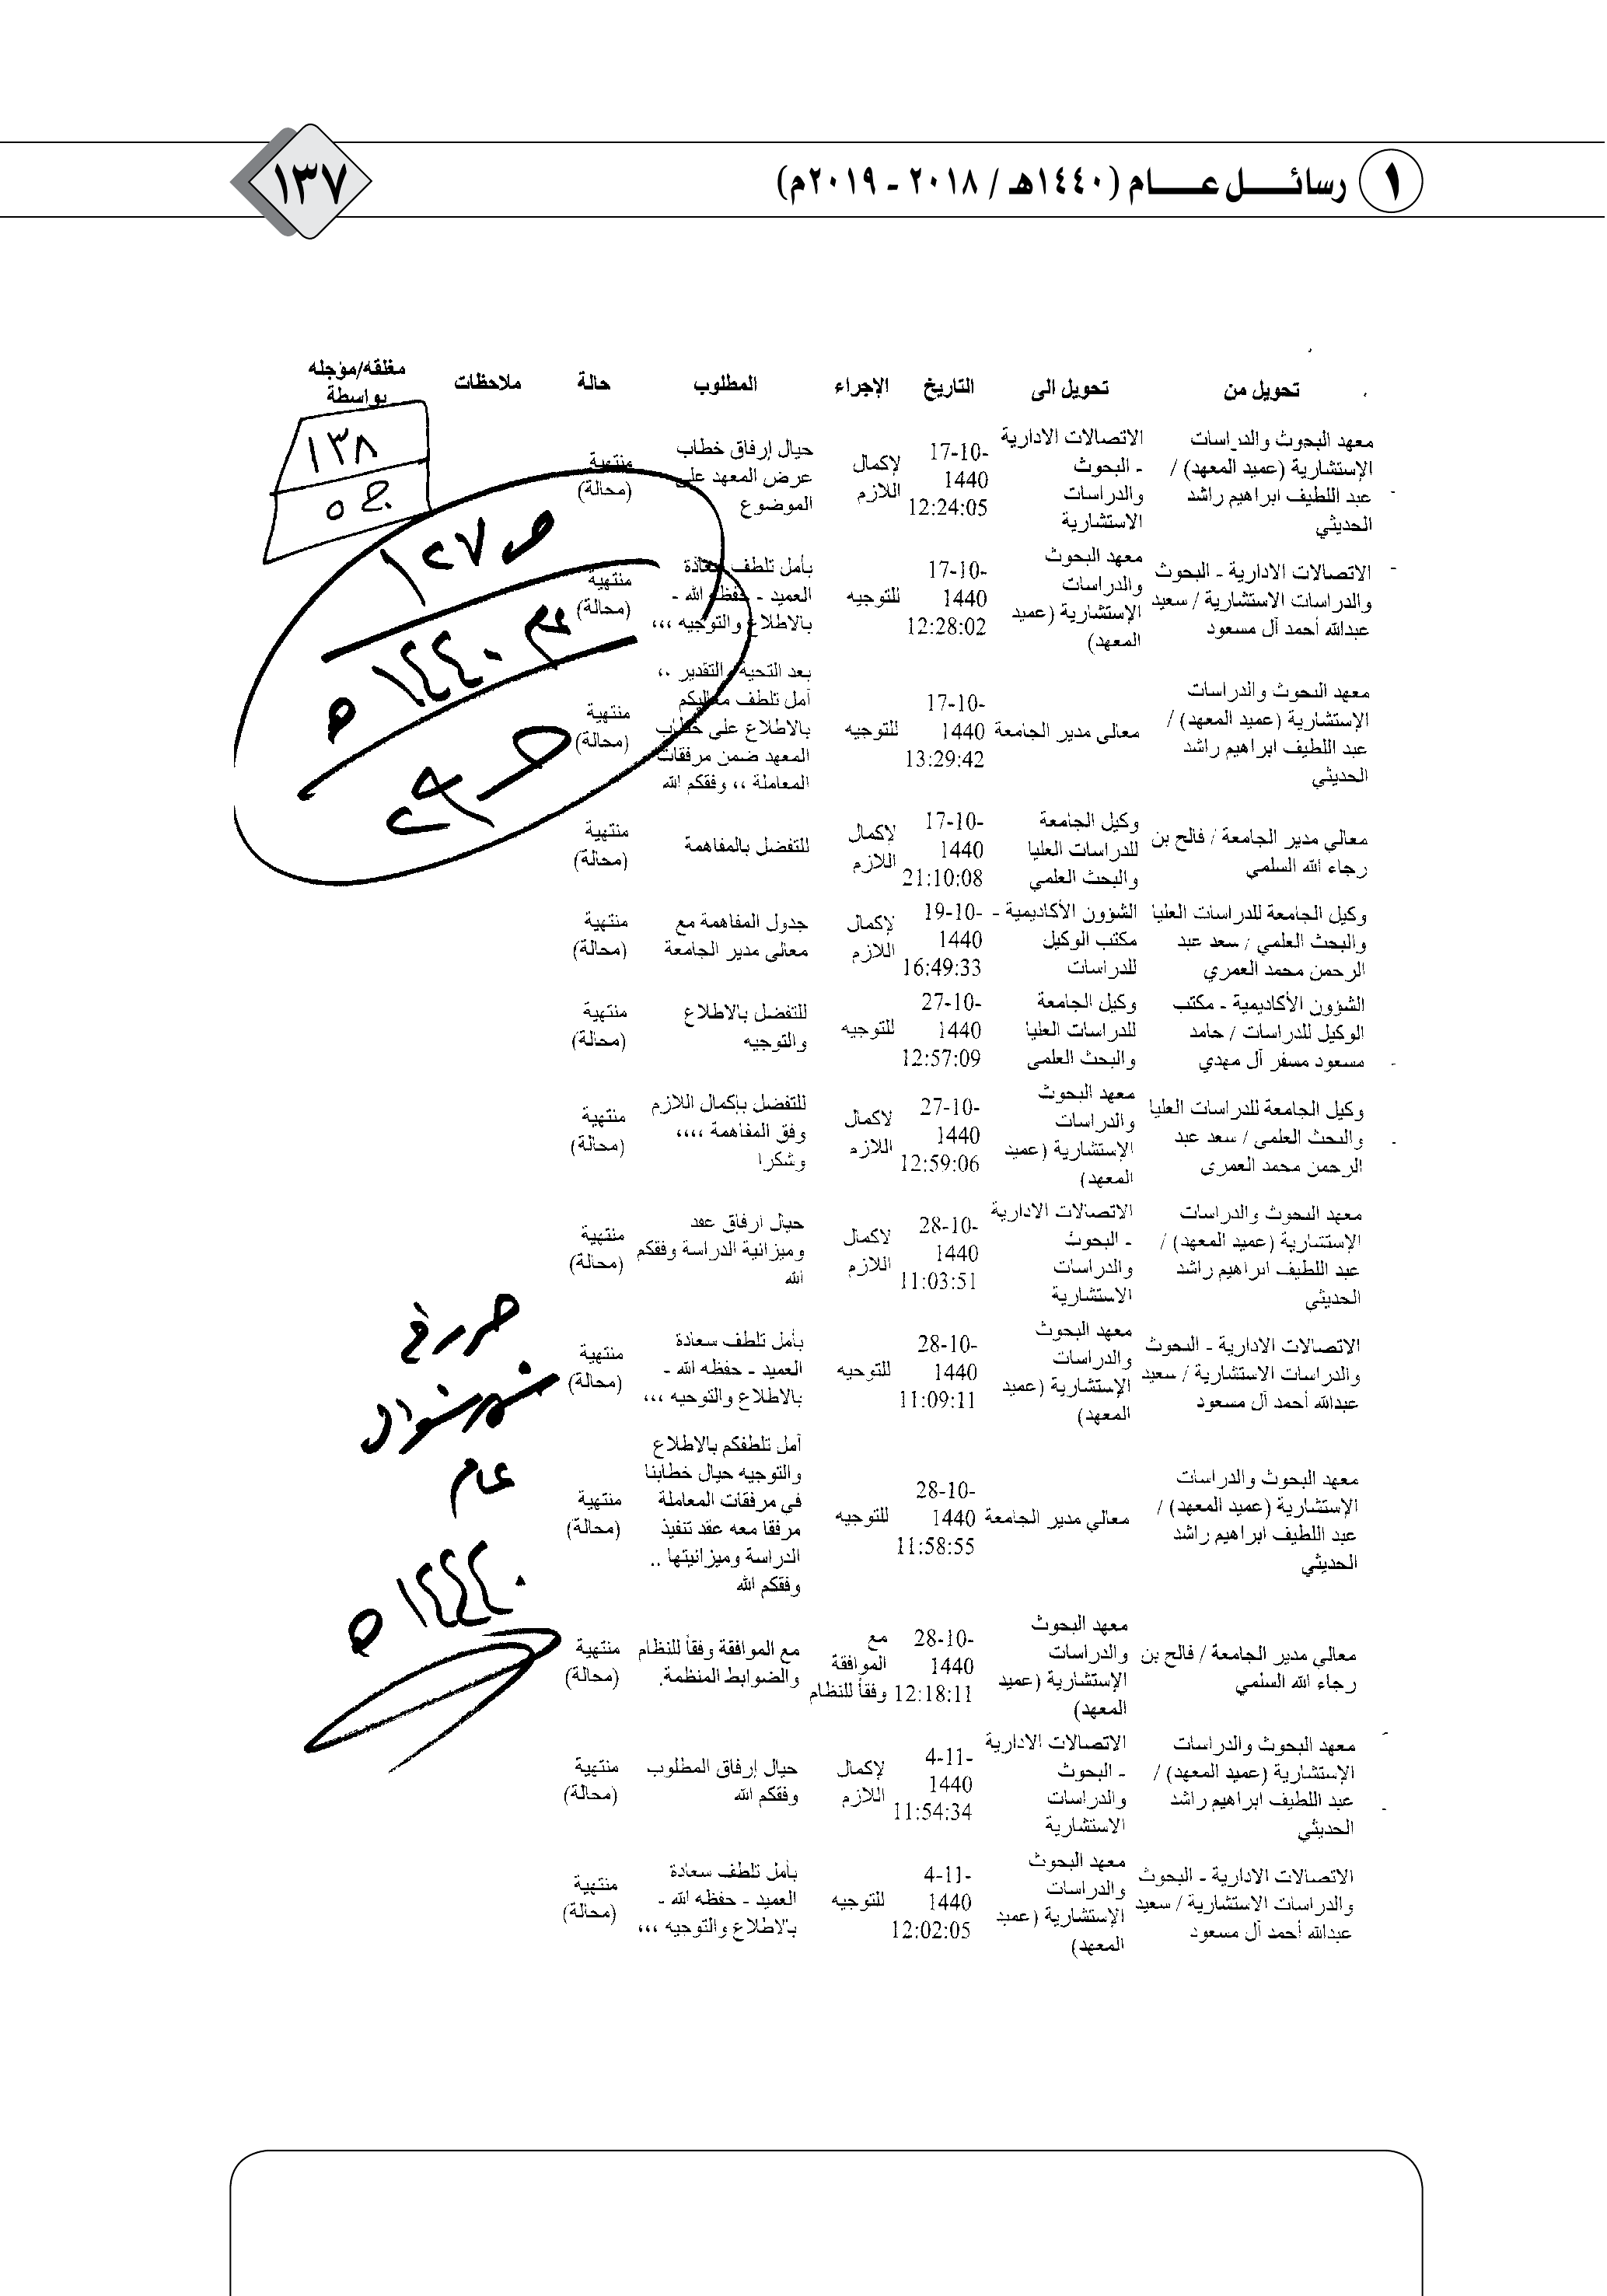 ١ رسائل عام (١٤٤٠هـ / ٢٠١٨ - ٢٠١٩م)
١٣٧
تحويل من تحويل الى التاريخ الإجراء المطلوب حالة ملاحظات مغلقه/مؤجله
بواسطة
معهد البحوث والدراسات
الإستشارية (عميد المعهد) /
عبد اللطيف ابراهيم راشد
الحديثي
الاتصالات الادارية
- البحوث
والدراسات
الاستشارية
17-10-
1440
12:24:05
لإكمال
اللازم
حيال إرفاق خطاب
عرض المعهد على
الموضوع
منتهية
(محالة)
الاتصالات الادارية - البحوث
والدراسات الاستشارية / سعيد
عبدالله أحمد آل مسعود
معهد البحوث
والدراسات
الإستشارية (عميد
المعهد)
17-10-
1440
12:28:02
للتوجيه
بأمل تلطف سعادة
العميد - حفظه الله -
بالاطلاع والتوجيه ،،،
منتهية
(محالة)
معهد البحوث والدراسات
الإستشارية (عميد المعهد) /
عبد اللطيف ابراهيم راشد
الحديثي
معالي مدير الجامعة
17-10-
1440
13:29:42
للتوجيه
بعد التحية والتقدير ،،
آمل تلطف معاليكم
بالاطلاع على خطاب
المعهد ضمن مرفقات
المعاملة ،، وفقكم الله
منتهية
(محالة)
معالي مدير الجامعة / فالح بن
رجاء الله السلمي
وكيل الجامعة
للدراسات العليا
والبحث العلمي
17-10-
1440
21:10:08
لإكمال
اللازم
للتفضل بالمفاهمة
منتهية
(محالة)
وكيل الجامعة للدراسات العليا
والبحث العلمي / سعد عبد
الرحمن محمد العمري
الشؤون الأكاديمية -
مكتب الوكيل
للدراسات
19-10-
1440
16:49:33
لإكمال
اللازم
جدول المفاهمة مع
معالي مدير الجامعة
منتهية
(محالة)
الشؤون الأكاديمية - مكتب
الوكيل للدراسات / حامد
مسعود مسفر آل مهدي
وكيل الجامعة
للدراسات العليا
والبحث العلمي
27-10-
1440
12:57:09
للتوجيه
للتفضل بالاطلاع
والتوجيه
منتهية
(محالة)
وكيل الجامعة للدراسات العليا
والبحث العلمي / سعد عبد
الرحمن محمد العمري
معهد البحوث
والدراسات
الإستشارية (عميد
المعهد)
27-10-
1440
12:59:06
لاكمال
اللازم
للتفضل بإكمال اللازم
وفق المفاهمة ،،،،
وشكرا
منتهية
(محالة)
معهد البحوث والدراسات
الإستشارية (عميد المعهد) /
عبد اللطيف ابراهيم راشد
الحديثي
الاتصالات الادارية
- البحوث
والدراسات
الاستشارية
28-10-
1440
11:03:51
لاكمال
اللازم
حيال ارفاق عقد
وميزانية الدراسة وفقكم
الله
منتهية
(محالة)
الاتصالات الادارية - البحوث
والدراسات الاستشارية / سعيد
عبدالله أحمد آل مسعود
معهد البحوث
والدراسات
الإستشارية (عميد
المعهد)
28-10-
1440
11:09:11
للتوجيه
بأمل تلطف سعادة
العميد - حفظه الله -
بالاطلاع والتوجيه ،،،
منتهية
(محالة)
معهد البحوث والدراسات
الإستشارية (عميد المعهد) /
عبد اللطيف ابراهيم راشد
الحديثي
معالي مدير الجامعة
28-10-
1440
11:58:55
للتوجيه
آمل تلطفكم بالاطلاع
والتوجيه حيال خطابنا
في مرفقات المعاملة
مرفقا معه عقد تنفيذ
الدراسة وميزانيتها ..
وفقكم الله
منتهية
(محالة)
معالي مدير الجامعة / فالح بن
رجاء الله السلمي
معهد البحوث
والدراسات
الإستشارية (عميد
المعهد)
28-10-
1440
12:18:11
مع
الموافقة
وفقاً للنظام
مع الموافقة وفقاً للنظام
والضوابط المنظمة.
منتهية
(محالة)
معهد البحوث والدراسات
الإستشارية (عميد المعهد) /
عبد اللطيف ابراهيم راشد
الحديثي
الاتصالات الادارية
- البحوث
والدراسات
الاستشارية
4-11-
1440
11:54:34
لإكمال
اللازم
حيال إرفاق المطلوب
وفقكم الله
منتهية
(محالة)
الاتصالات الادارية - البحوث
والدراسات الاستشارية / سعيد
عبدالله أحمد آل مسعود
معهد البحوث
والدراسات
الإستشارية (عميد
المعهد)
4-11-
1440
12:02:05
للتوجيه
بأمل تلطف سعادة
العميد - حفظه الله -
بالاطلاع والتوجيه ،،،
منتهية
(محالة)
١٣٨
عام ١٤٤٠ه
حرر في
شهر شوال
عام
١٤٤٠ه